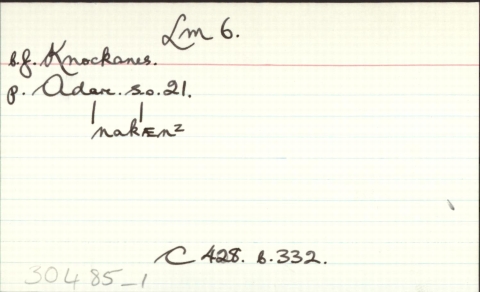 Lm 6.
b.f. Knockanes.
p. Adare. s.o. 21.
| |
nakÆnz
C 428. b. 332.
30485_1